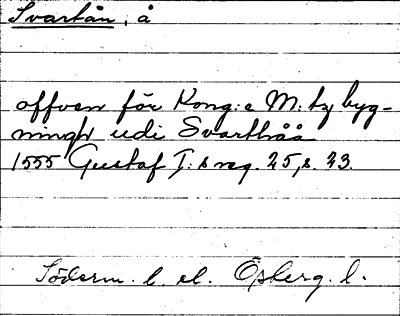 Svartån, å
offven för Kong:e M:tz byg-
ningh udi Svarthåå
1555 Gustaf I:s reg. 25, s. 23.
Söderm. l. el. Österg. l.